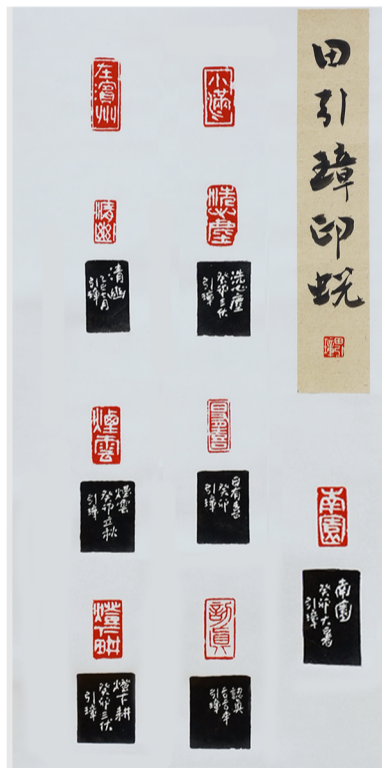 田引璋印蜕
南園
南園
癸卯大暑
引璋
小滿
洗心塵
洗心塵
癸卯三伏
引璋
日有熹
癸卯
引璋
認真
引璋
左濱州
清幽
清幽
引璋
煙雲
煙雲
癸卯立秋
引璋
燈下耕
燈下耕
癸卯三伏
引璋